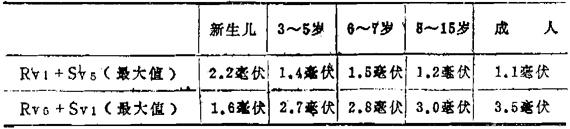 新生儿 3～5岁 6～7岁 8～15岁 成 人
Rv1+Sv5(最大值) 2.2毫伏 1.4毫伏 1.5毫伏 1.2毫伏 1.1毫伏
Rv5+Sv1(最大值) 1.6毫伏 2.7毫伏 2.8毫伏 3.0毫伏 3.5毫伏